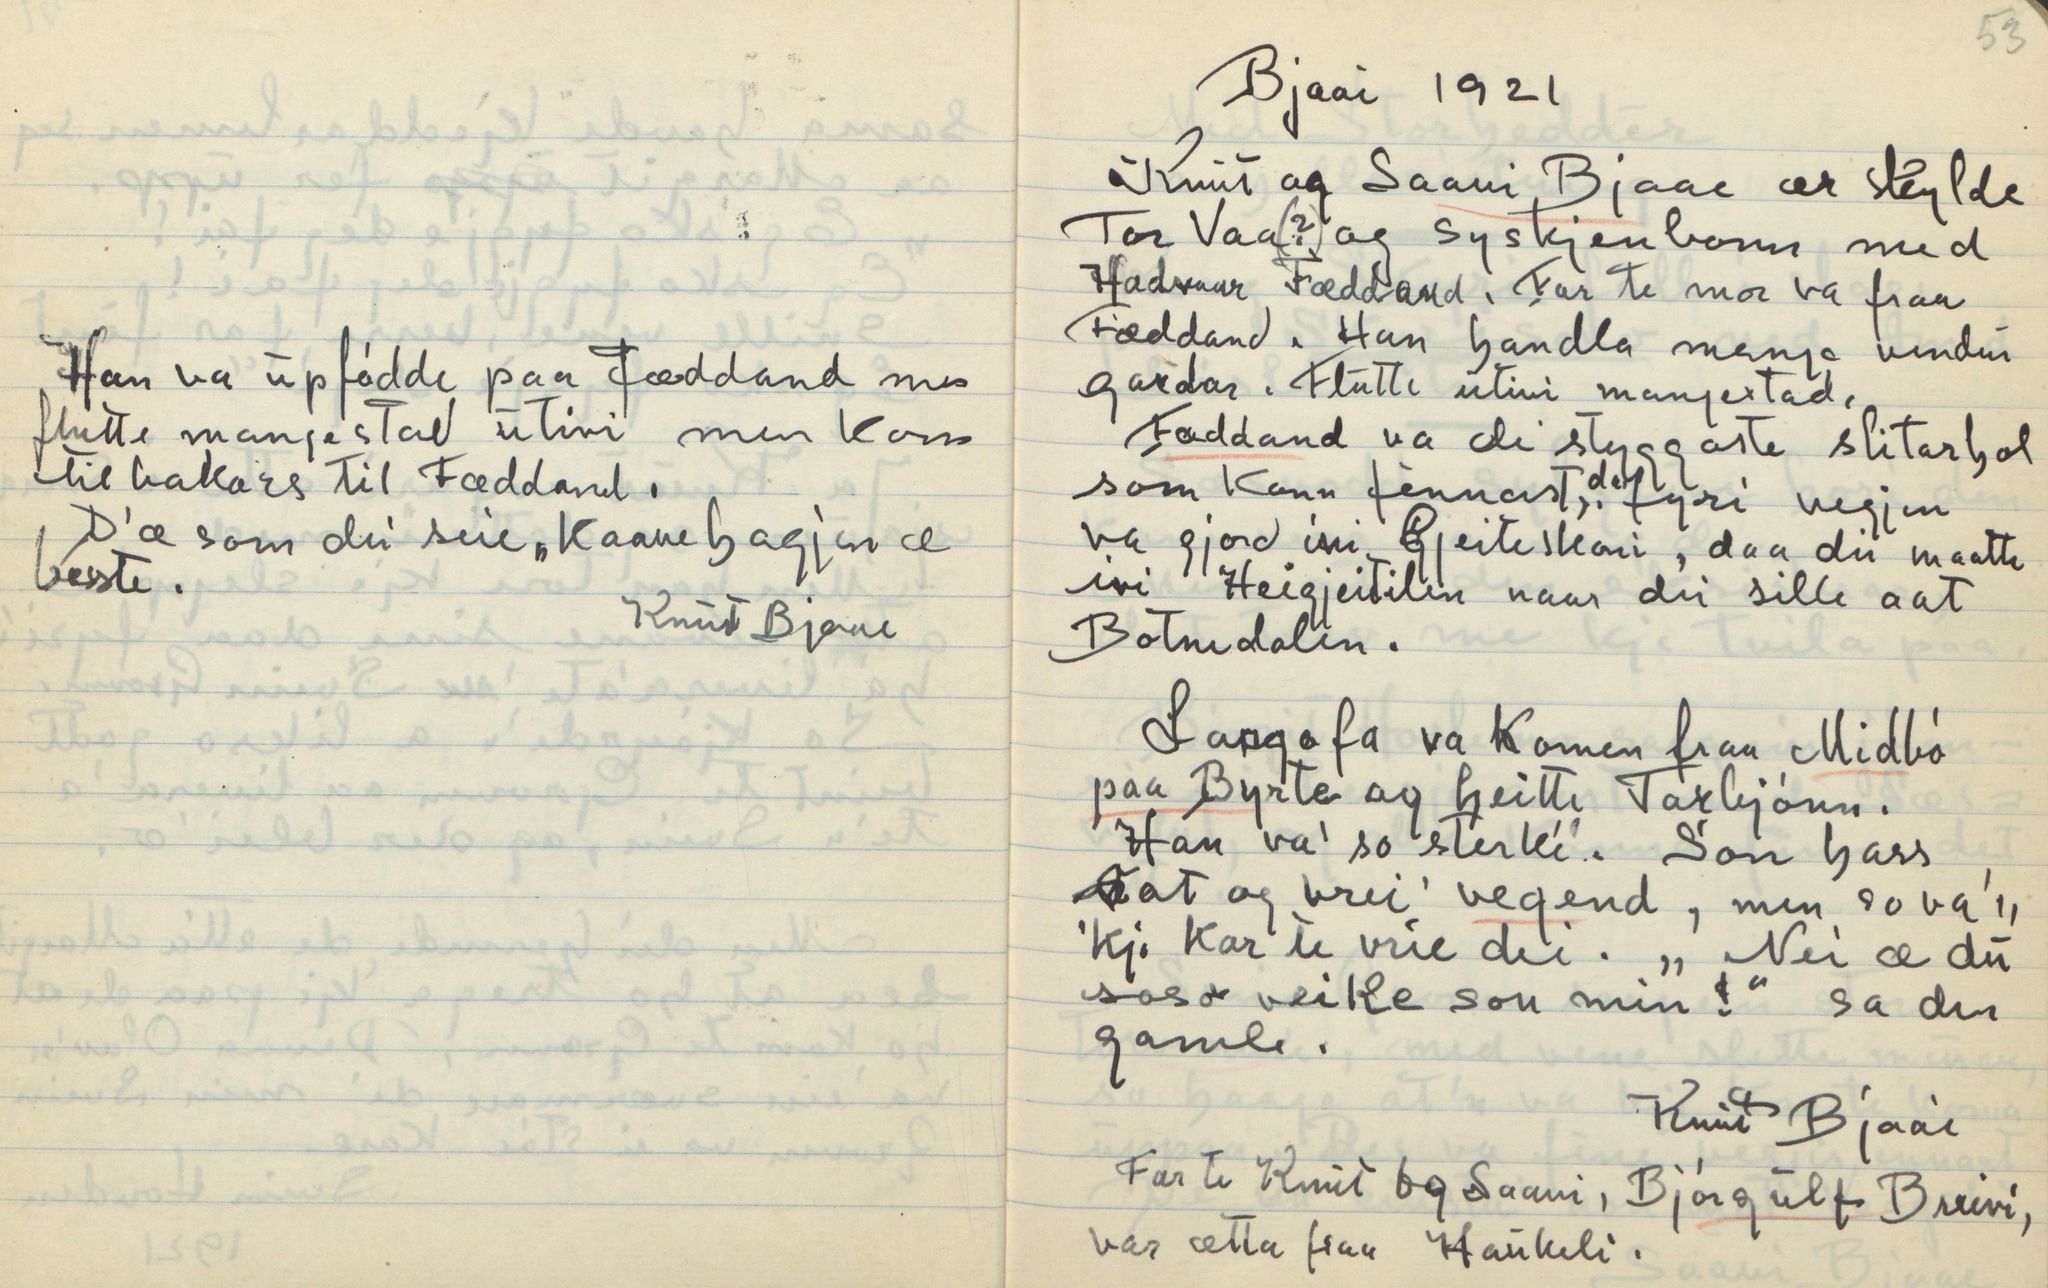 Han va üpfødde paa Fæddand men
flutte mangestad ütivi men kom
tilbakars til Fæddand.
D'æ som dü seie „Kaanehagjen æ
beste.
Knüt Bjaae
53
Bjaai 1921
Knüt og Saavi Bjaae ær skylde
Tor Vaa(?) og syskjenbonn med
Hadvaar Fæddand. Far te mor va fraa
Fæddand. Han handla mange vendür
gardar. Flutte ütivi mangestad.
Fæddand va dei styggaste slitarhol
som kann finnast, der fyri vegjen
va gjord ivi Gjeiteskari, daa dü maatte
ivi Heigjeitilen naar dü sille aat
Botnedalen.
Langofa va komen fraa Midbó
paa Byrte og heitte Tarbjónn.
Han va' so sterké. Son hass
tat og vrei' vegend, men so va'„
'kji kar te vrie dei. „Nei æ dü
soso veike son min!" sa den
gamle.
Knüt Bjaai
Far te Knüt og Saavi, Bjórgülf Breivi,
var ætta fraa Haukeli.